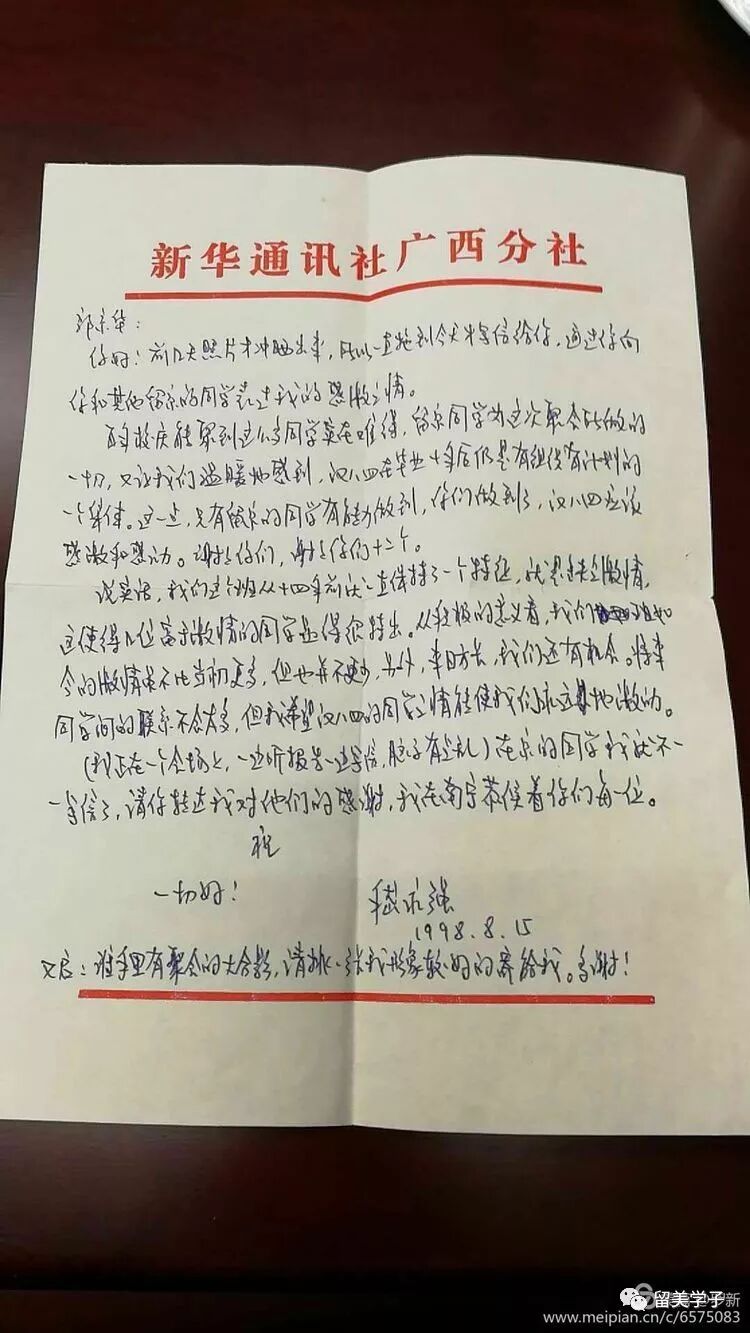 新华通讯社广西分社
京华：
你好！前几天照片才冲晒出来，所以一直拖到今天才写信给你，通过你向
你和其他留京的同学表达我的感激之情。
校庆能聚到这么多同学实在难得，留京同学为这次聚会所做的
一切，又让我们温暖地感到，汉八四在毕业十年后仍是有组织有计划的
一个集体。这一点，只有留京的同学有能力做到，你们做到了，汉八四应该
感激和感动。谢谢你们，谢谢你们十二个。
说实话，我们这个班从十四年前就一直保持了一个特征，就是缺乏激情，
这使得几位富于激情的同学显得很特出。从积极的意义看，我们如
今的激情虽不比当初更多，但也并不更少，另外，来日方长，我们还有机会。将来
同学间的联系不会太多，但我希望汉八四的同学之情能使我们永远地激动。
（我正在一个会场上，一边听报告一边写信，脑子有些乱）在京的同学我就不一
一写信了，请你转达我对他们的感谢，我在南宁恭候着你们每一位。
祝
一切好！
永强
1998.8.15
又启：谁手里有聚会的大合影，请挑一张我形象较好的寄给我。多谢！
留美学子
www.meipian.cn/c/6575083